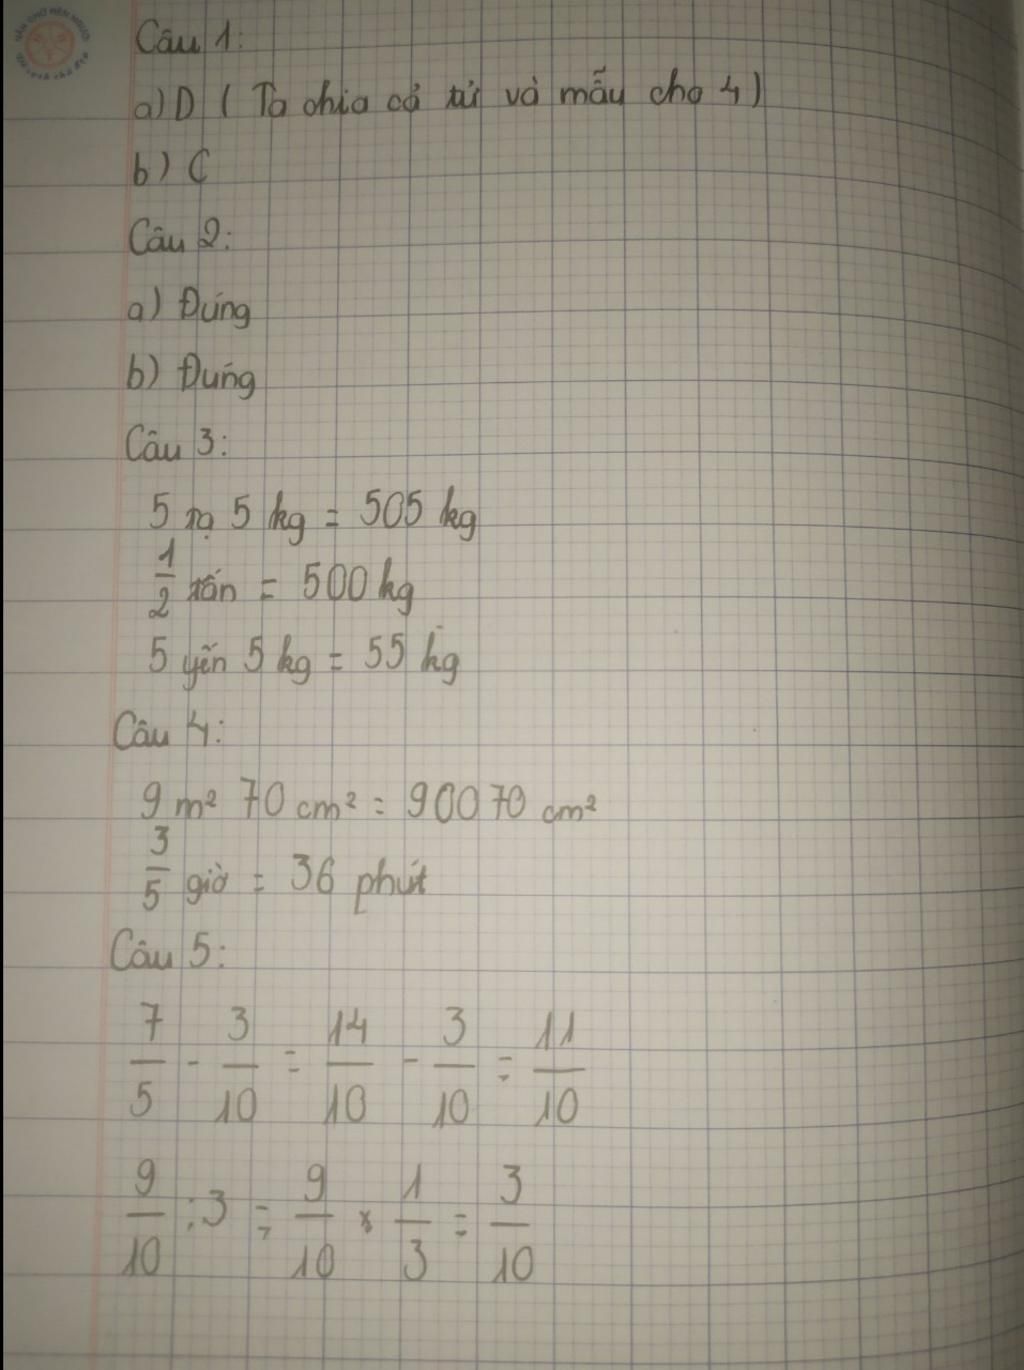 Câu 1:
a) D ( Ta chia cả tử và mẫu cho 4)
b) C
Câu 2:
a) Đúng
b) Đúng
Câu 3:
5 tạ 5 kg = 505 kg
1/2 tấn = 500 kg
5 yến 5 kg = 55 kg
Câu 4:
9 m² 70 cm² = 90070 cm²
3/5 giờ = 36 phút
Câu 5:
7/5 - 3/10 = 14/10 - 3/10 = 11/10
9/10 : 3 = 9/10 × 1/3 = 3/10